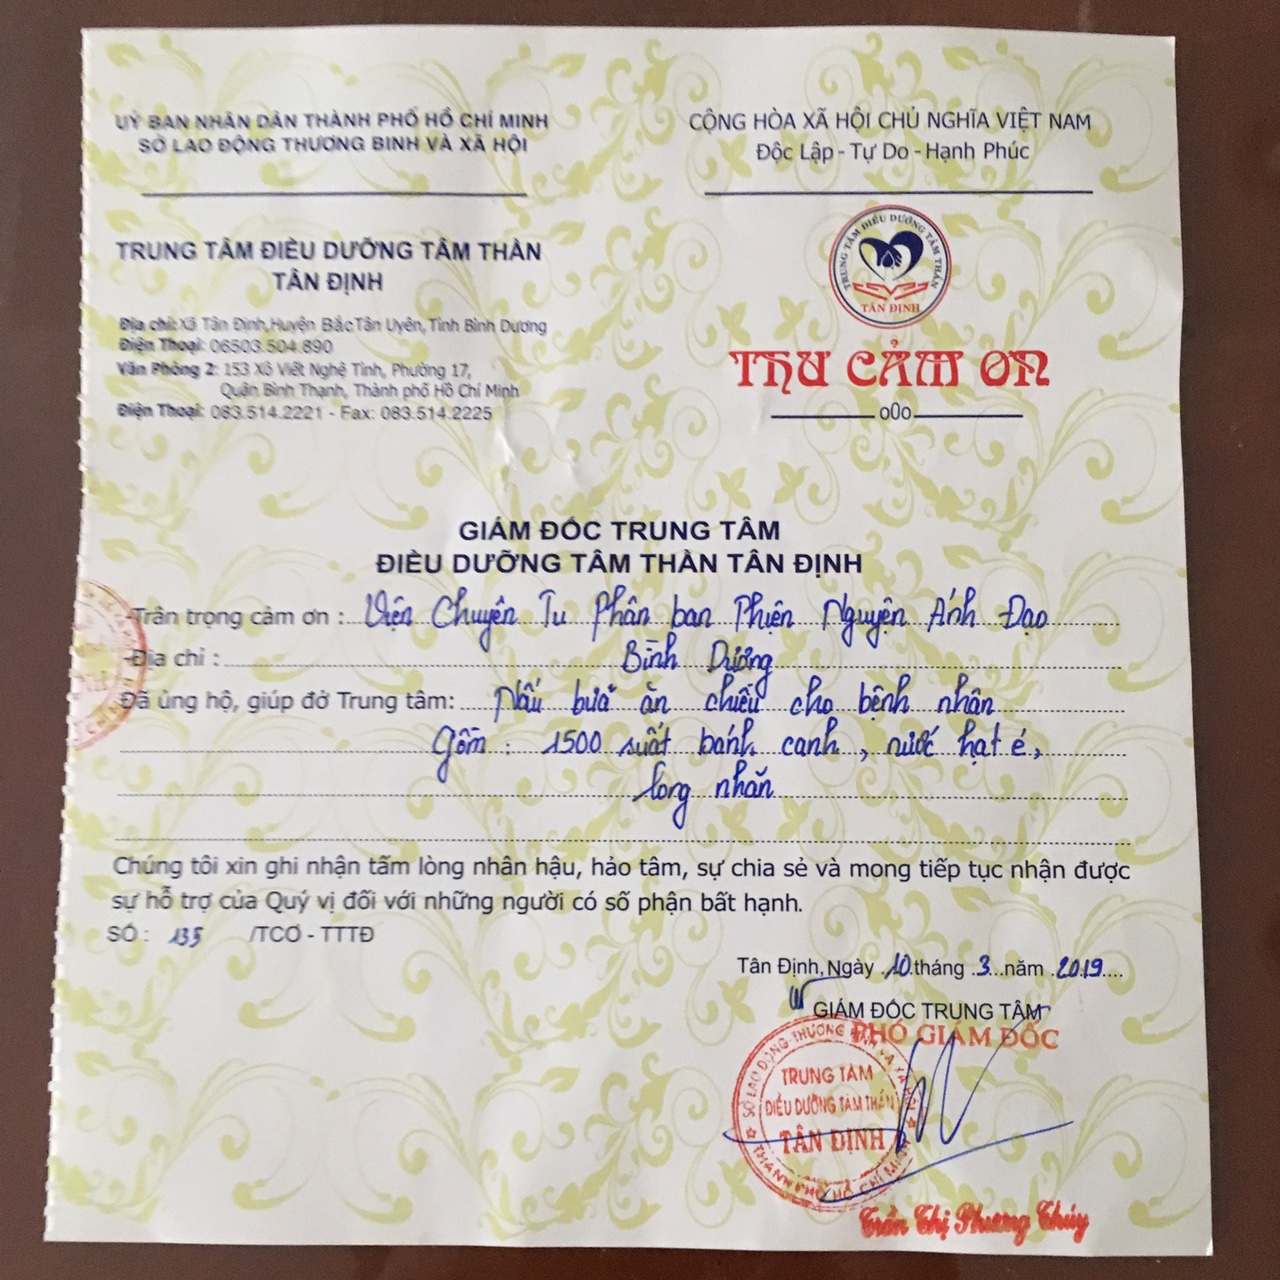 UỶ BAN NHÂN DÂN THÀNH PHỐ HỒ CHÍ MINH
SỞ LAO ĐỘNG THƯƠNG BINH VÀ XÃ HỘI
CỘNG HÒA XÃ HỘI CHỦ NGHĨA VIỆT NAM
Độc Lập - Tự Do - Hạnh Phúc
TRUNG TÂM ĐIỀU DƯỠNG TÂM THẦN
TÂN ĐỊNH
Địa chỉ: Xã Tân Định, Huyện Bắc Tân Uyên, Tỉnh Bình Dương
Điện Thoại: 06503.504.890
Văn Phòng 2: 153 Xô Viết Nghệ Tĩnh, Phường 17,
Quận Bình Thạnh, Thành phố Hồ Chí Minh
Điện Thoại: 083.514.2221 - Fax: 083.514.2225
TRUNG TÂM ĐIỀU DƯỠNG TÂM THẦN
TÂN ĐỊNH
THƯ CẢM ƠN
o0o
GIÁM ĐỐC TRUNG TÂM
ĐIỀU DƯỠNG TÂM THẦN TÂN ĐỊNH
Trân trọng cảm ơn : Viện Chuyên Tu Phân ban Thiện Nguyện Ánh Đạo
Địa chỉ : Bình Dương
Đã ủng hộ, giúp đở Trung tâm: Nấu bữa ăn chiều cho bệnh nhân
Gồm : 1500 suất bánh canh, nước hạt é,
long nhãn
Chúng tôi xin ghi nhận tấm lòng nhân hậu, hảo tâm, sự chia sẻ và mong tiếp tục nhận được
sự hỗ trợ của Quý vị đối với những người có số phận bất hạnh.
SỐ : 135 /TCƠ - TTTĐ
Tân Định, Ngày 10 tháng 3 năm 2019
GIÁM ĐỐC TRUNG TÂM
PHÓ GIÁM ĐỐC
SỞ LAO ĐỘNG-THƯƠNG BINH VÀ XÃ HỘI
TRUNG TÂM
ĐIỀU DƯỠNG TÂM THẦN
TÂN ĐỊNH
THÀNH PHỐ HỒ CHÍ MINH
Trần Thị Phương Thúy